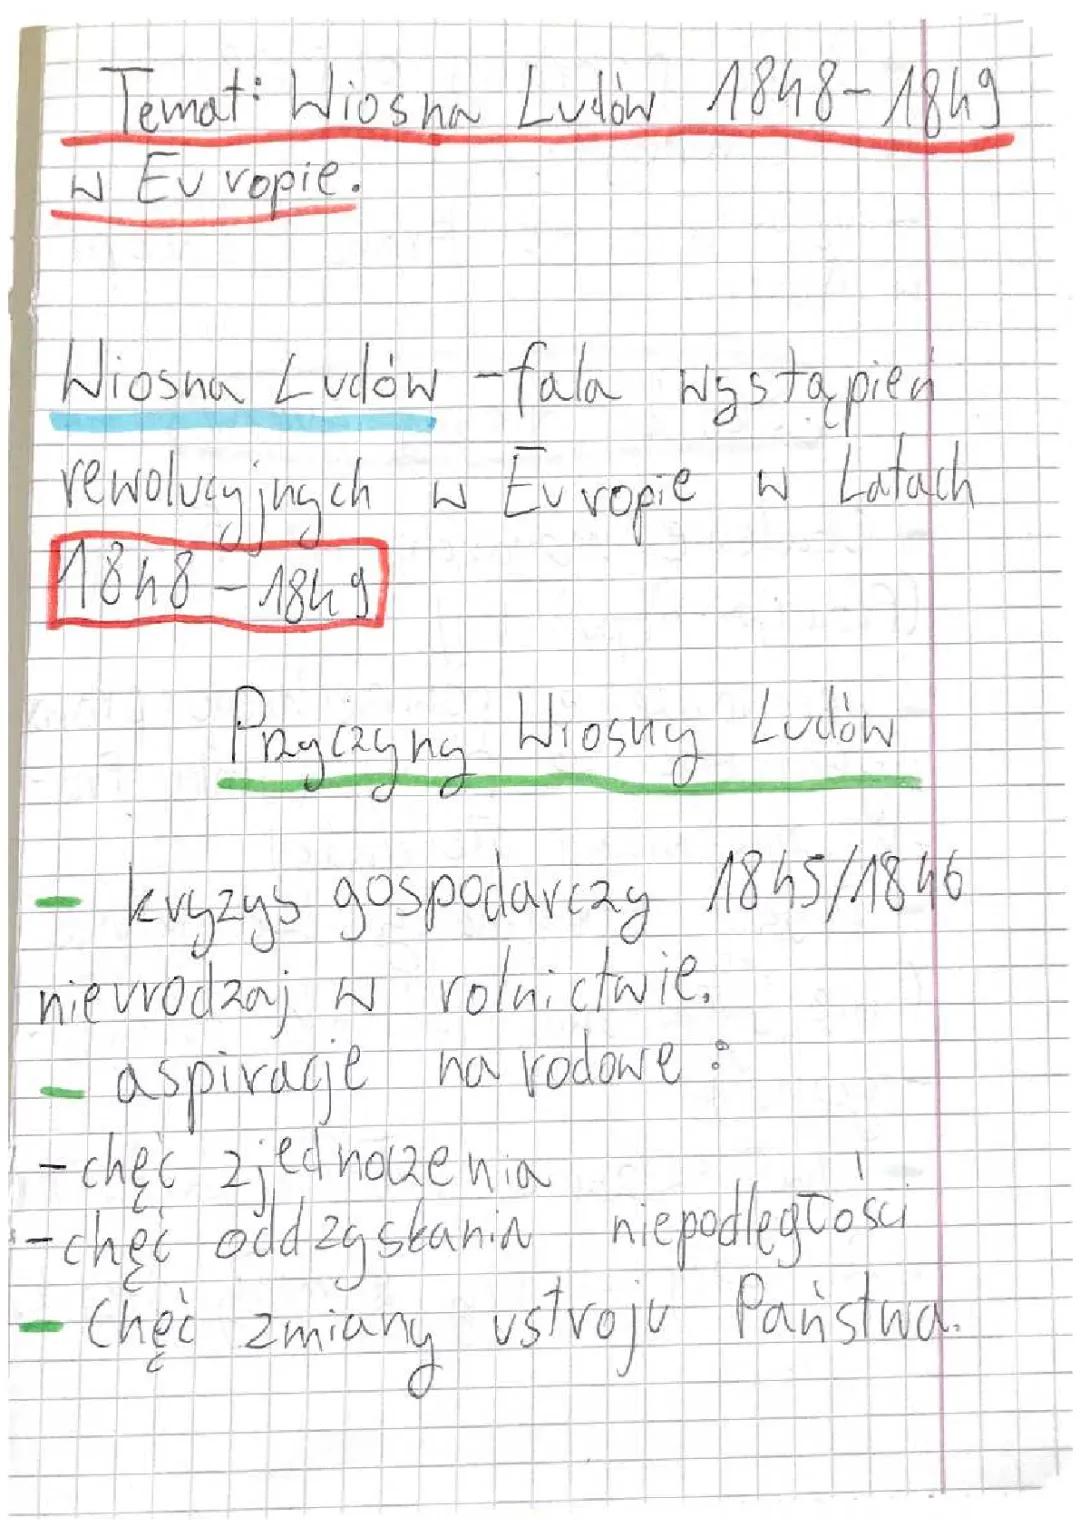 Temat: Wiosna Ludów 1848-1849
w Europie.
Wiosna Ludów - fala wystąpień
rewolucyjnych w Europie w Latach
1848-1849
Przyczyny Wiosny Ludów
- kryzys gospodarczy 1845/1846
nieurodzaj w rolnictwie.
- aspiracje narodowe:
- chęć zjednoczenia
- chęć oddzyskania niepodległości
- Chęć zmiany ustroju Państwa.